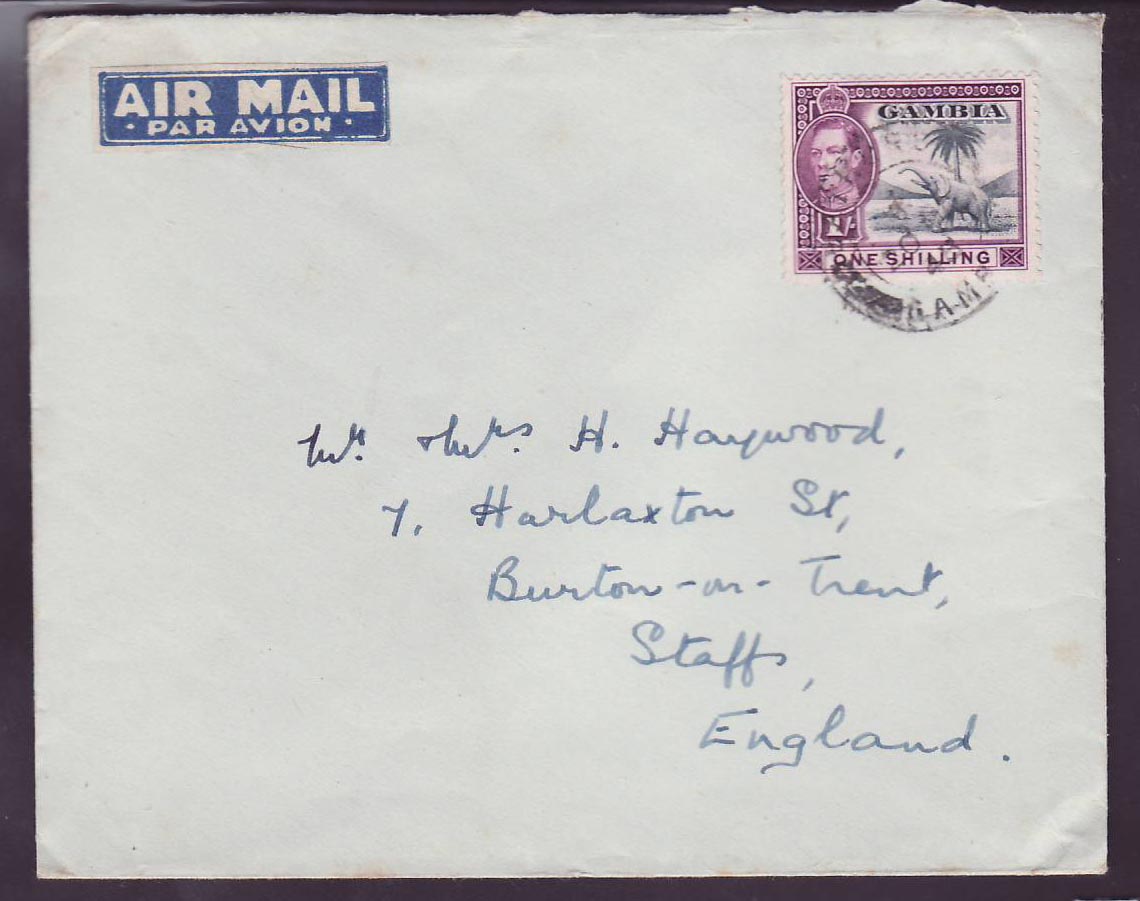 AIR MAIL
· PAR AVION ·
GAMBIA
1/-
ONE SHILLING
GAMB
Mr. & Mrs. H. Haywood,
7. Harlaxton St,
Burton-on-Trent,
Staffs,
England.